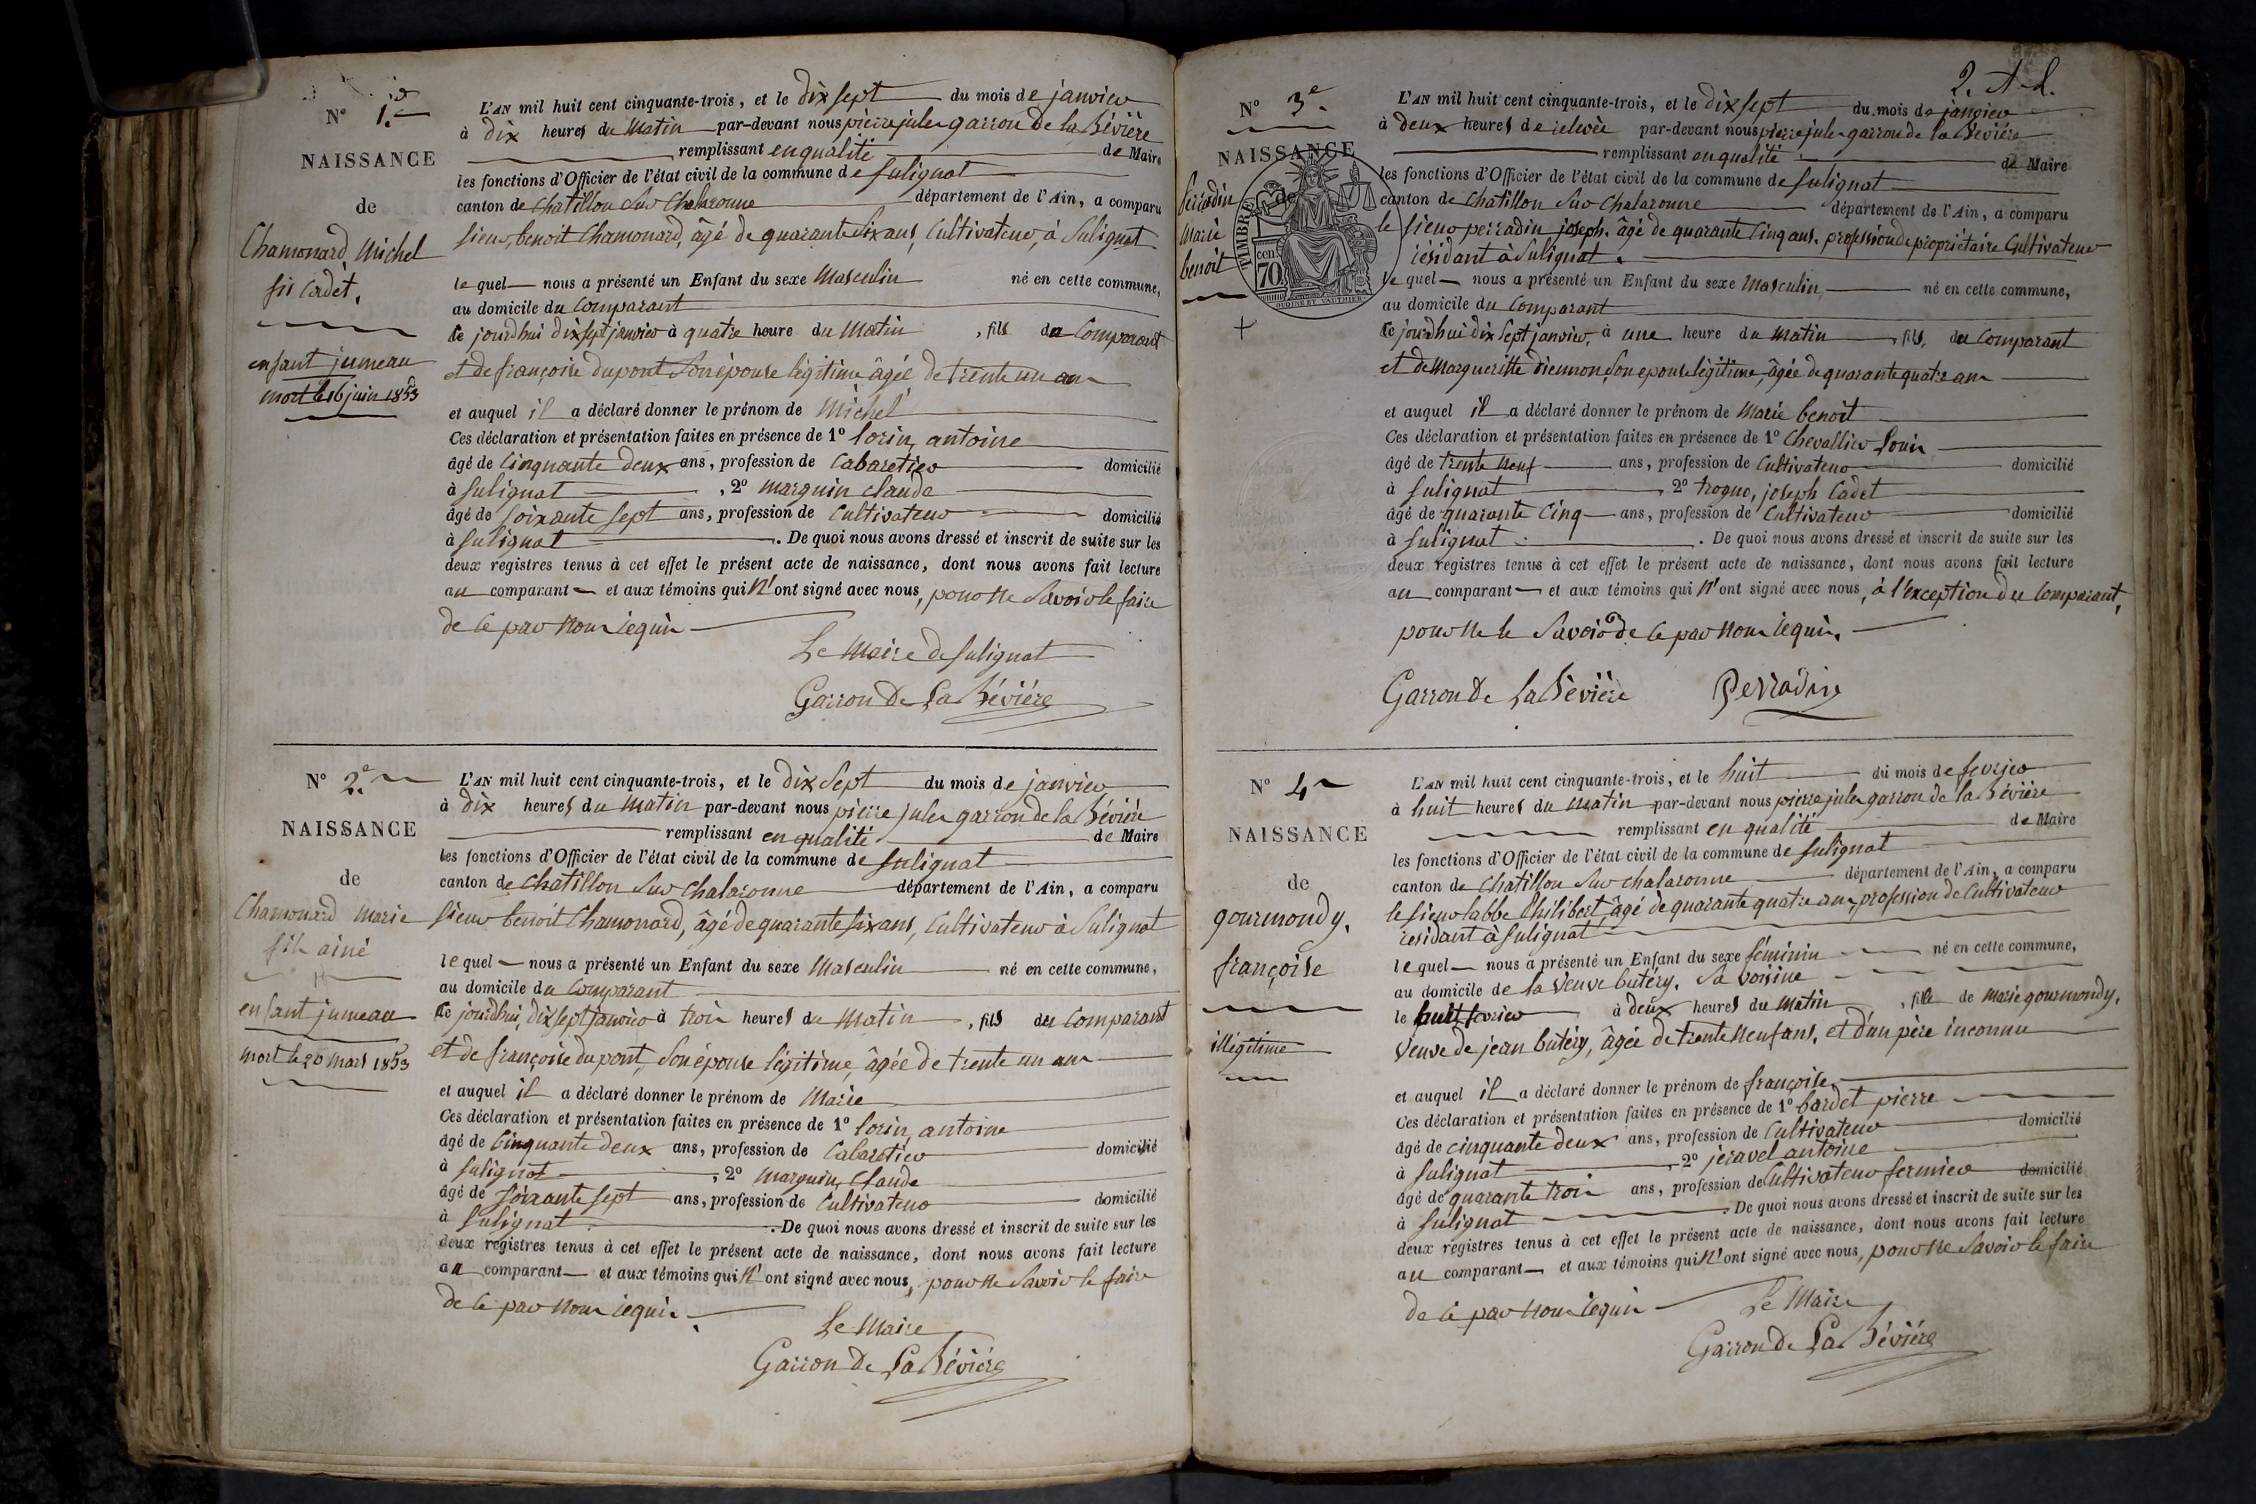 N° 1.er
NAISSANCE
de
Chamonard Michel
fils Cadèt.
enfant jumeau
mort le 16 juin 1853
L'AN mil huit cent cinquante-trois, et le dix sept du mois de janvier
à dix heures du Matin par-devant nous pierre jules garron De la Bévière
remplissant en qualité de Maire
les fonctions d'Officier de l'état civil de la commune de Sulignat
canton de Chatillon Sur Chalaronne département de l'Ain, a comparu
Sieur, benoit Chamonard, âgé de quarante Six ans, Cultivateur, à Sulignat
le quel nous a présenté un Enfant du sexe Masculin né en cette commune,
au domicile du Comparant
Ce jourdhui dix sept janvier à quatre heure du Matin, fils du Comparant
et de françoise dupont Son épouse légitime âgée de trente un ans
et auquel il a déclaré donner le prénom de Michel
Ces déclaration et présentation faites en présence de 1° lorin, antoine
âgé de Cinquante deux ans, profession de Cabaretier domicilié
à Sulignat, 2° marguin claude
âgé de Soixante Sept ans, profession de Cultivateur domicilié
à Sulignat. De quoi nous avons dressé et inscrit de suite sur les
deux registres tenus à cet effet le présent acte de naissance, dont nous avons fait lecture
au comparant et aux témoins qui N'ont signé avec nous, pour ne Savoir le faire
de Ce par Nous requis
Le Maire de Sulignat
Garron De La Bévière
N° 2.e
NAISSANCE
de
Chamonard Marie
fils ainé
enfant jumeau
mort le 20 mars 1853
L'AN mil huit cent cinquante-trois, et le Dix Sept du mois de janvier
à Dix heures du Matin par-devant nous pierre jules garron de la Bévière
remplissant en qualité de Maire
les fonctions d'Officier de l'état civil de la commune de Sulignat
canton de Chatillon Sur Chalaronne département de l'Ain, a comparu
Sieur benoit Chamonard, âgé de quarante Six ans, Cultivateur à Sulignat
le quel nous a présenté un Enfant du sexe Masculin né en cette commune,
au domicile du Comparant
Ce jourdhui, dix sept janvier à trois heures du Matin, fils du Comparant
et de françoise dupont, Son épouse légitime, âgée de trente un ans
et auquel il a déclaré donner le prénom de Marie
Ces déclaration et présentation faites en présence de 1° lorin, antoine
âgé de Cinquante deux ans, profession de Cabaretier domicilié
à Sulignat, 2° marguin, Claude
âgé de Soixante Sept ans, profession de Cultivateur domicilié
à Sulignat. De quoi nous avons dressé et inscrit de suite sur les
deux registres tenus à cet effet le présent acte de naissance, dont nous avons fait lecture
au comparant et aux témoins qui N'ont signé avec nous, pour ne Savoir le faire
de Ce par Nous requis.
Le Maire
Garron De La Bévière
2.
N° 3.e
NAISSANCE
de
Perradin
Marie
benoit
TIMBRE
cen. 70
OUDINÉ ET GAUTHIER
L'AN mil huit cent cinquante-trois, et le dix sept du mois de janvier
à deux heures de relevée par-devant nous pierre jules garron de la Bévière
remplissant en qualité de Maire
les fonctions d'Officier de l'état civil de la commune de Sulignat
canton de Chatillon Sur Chalaronne département de l'Ain, a comparu
le Sieur perradin joseph. âgé de quarante Cinq ans. profession de propriétaire Cultivateur
résidant à Sulignat.
le quel nous a présenté un Enfant du sexe Masculin, né en cette commune,
au domicile du Comparant
Ce jourdhui dix Sept janvier, à une heure du matin fils, du Comparant
et de Margueritte diennon, Son epouse légitime, âgée de quarante quatre ans
et auquel il a déclaré donner le prénom de Marie benoit
Ces déclaration et présentation faites en présence de 1° Chevallier Louis
âgé de trente neuf ans, profession de Cultivateur domicilié
à Sulignat 2° trogno, joseph Cadet
âgé de quarante Cinq ans, profession de Cultivateur domicilié
à Sulignat. De quoi nous avons dressé et inscrit de suite sur les
deux registres tenus à cet effet le présent acte de naissance, dont nous avons fait lecture
au comparant et aux témoins qui N'ont signé avec nous, à l'exception du Comparant,
pour Ne le Savoir de Ce par Nous requis.
Garron De La Bévière Perradin
N° 4
NAISSANCE
de
gourmondy.
françoise
illégitime
L'AN mil huit cent cinquante-trois, et le huit du mois de fevrier
à huit heures du Matin par-devant nous pierre jules garron de la Bévière
remplissant en qualité de Maire
les fonctions d'Officier de l'état civil de la commune de Sulignat
canton de Chatillon Sur Chalaronne département de l'Ain, a comparu
le Sieur labbe Philibert, âgé de quarante quatre ans, profession de Cultivateur
résidant à Sulignat
le quel nous a présenté un Enfant du sexe féminin né en cette commune,
au domicile de la Veuve butéry, Sa Voisine
le huit fevrier à deux heures du Matin, fille de marie gourmondy.
Veuve de jean butéry, âgée de trente neuf ans, et d'un père inconnu
et auquel il a déclaré donner le prénom de françoise
Ces déclaration et présentation faites en présence de 1° bardet pierre
âgé de cinquante deux ans, profession de Cultivateur domicilié
à Sulignat 2° jeravel antoine
âgé de quarante trois ans, profession de Cultivateur fermier domicilié
à Sulignat. De quoi nous avons dressé et inscrit de suite sur les
deux registres tenus à cet effet le présent acte de naissance, dont nous avons fait lecture
au comparant et aux témoins qui N'ont signé avec nous, pour ne Savoir le faire
de Ce par Nous requis
Le Maire
Garron De La Bévière